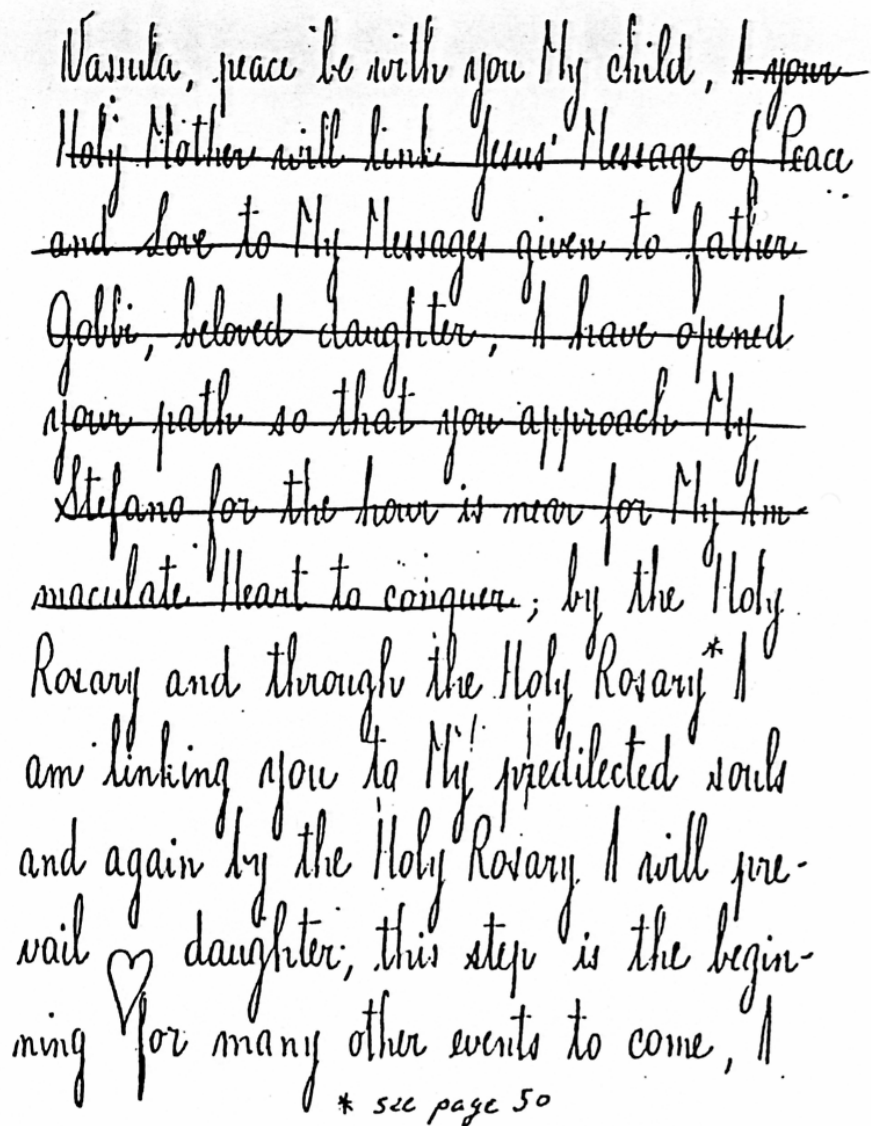 Vassula, peace be with you My child, I your
Holy Mother will link Jesus' Message of Peace
and Love to My Messages given to father
Gobbi, beloved daughter, I have opened
your path so that you approach My
Stefano for the hour is near for My Im-
maculate Heart to conquer; by the Holy
Rosary and through the Holy Rosary* I
am linking you to My predilected souls
and again by the Holy Rosary I will pre-
vail ♡ daughter, this step is the begin-
ning for many other events to come, I
* see page 50